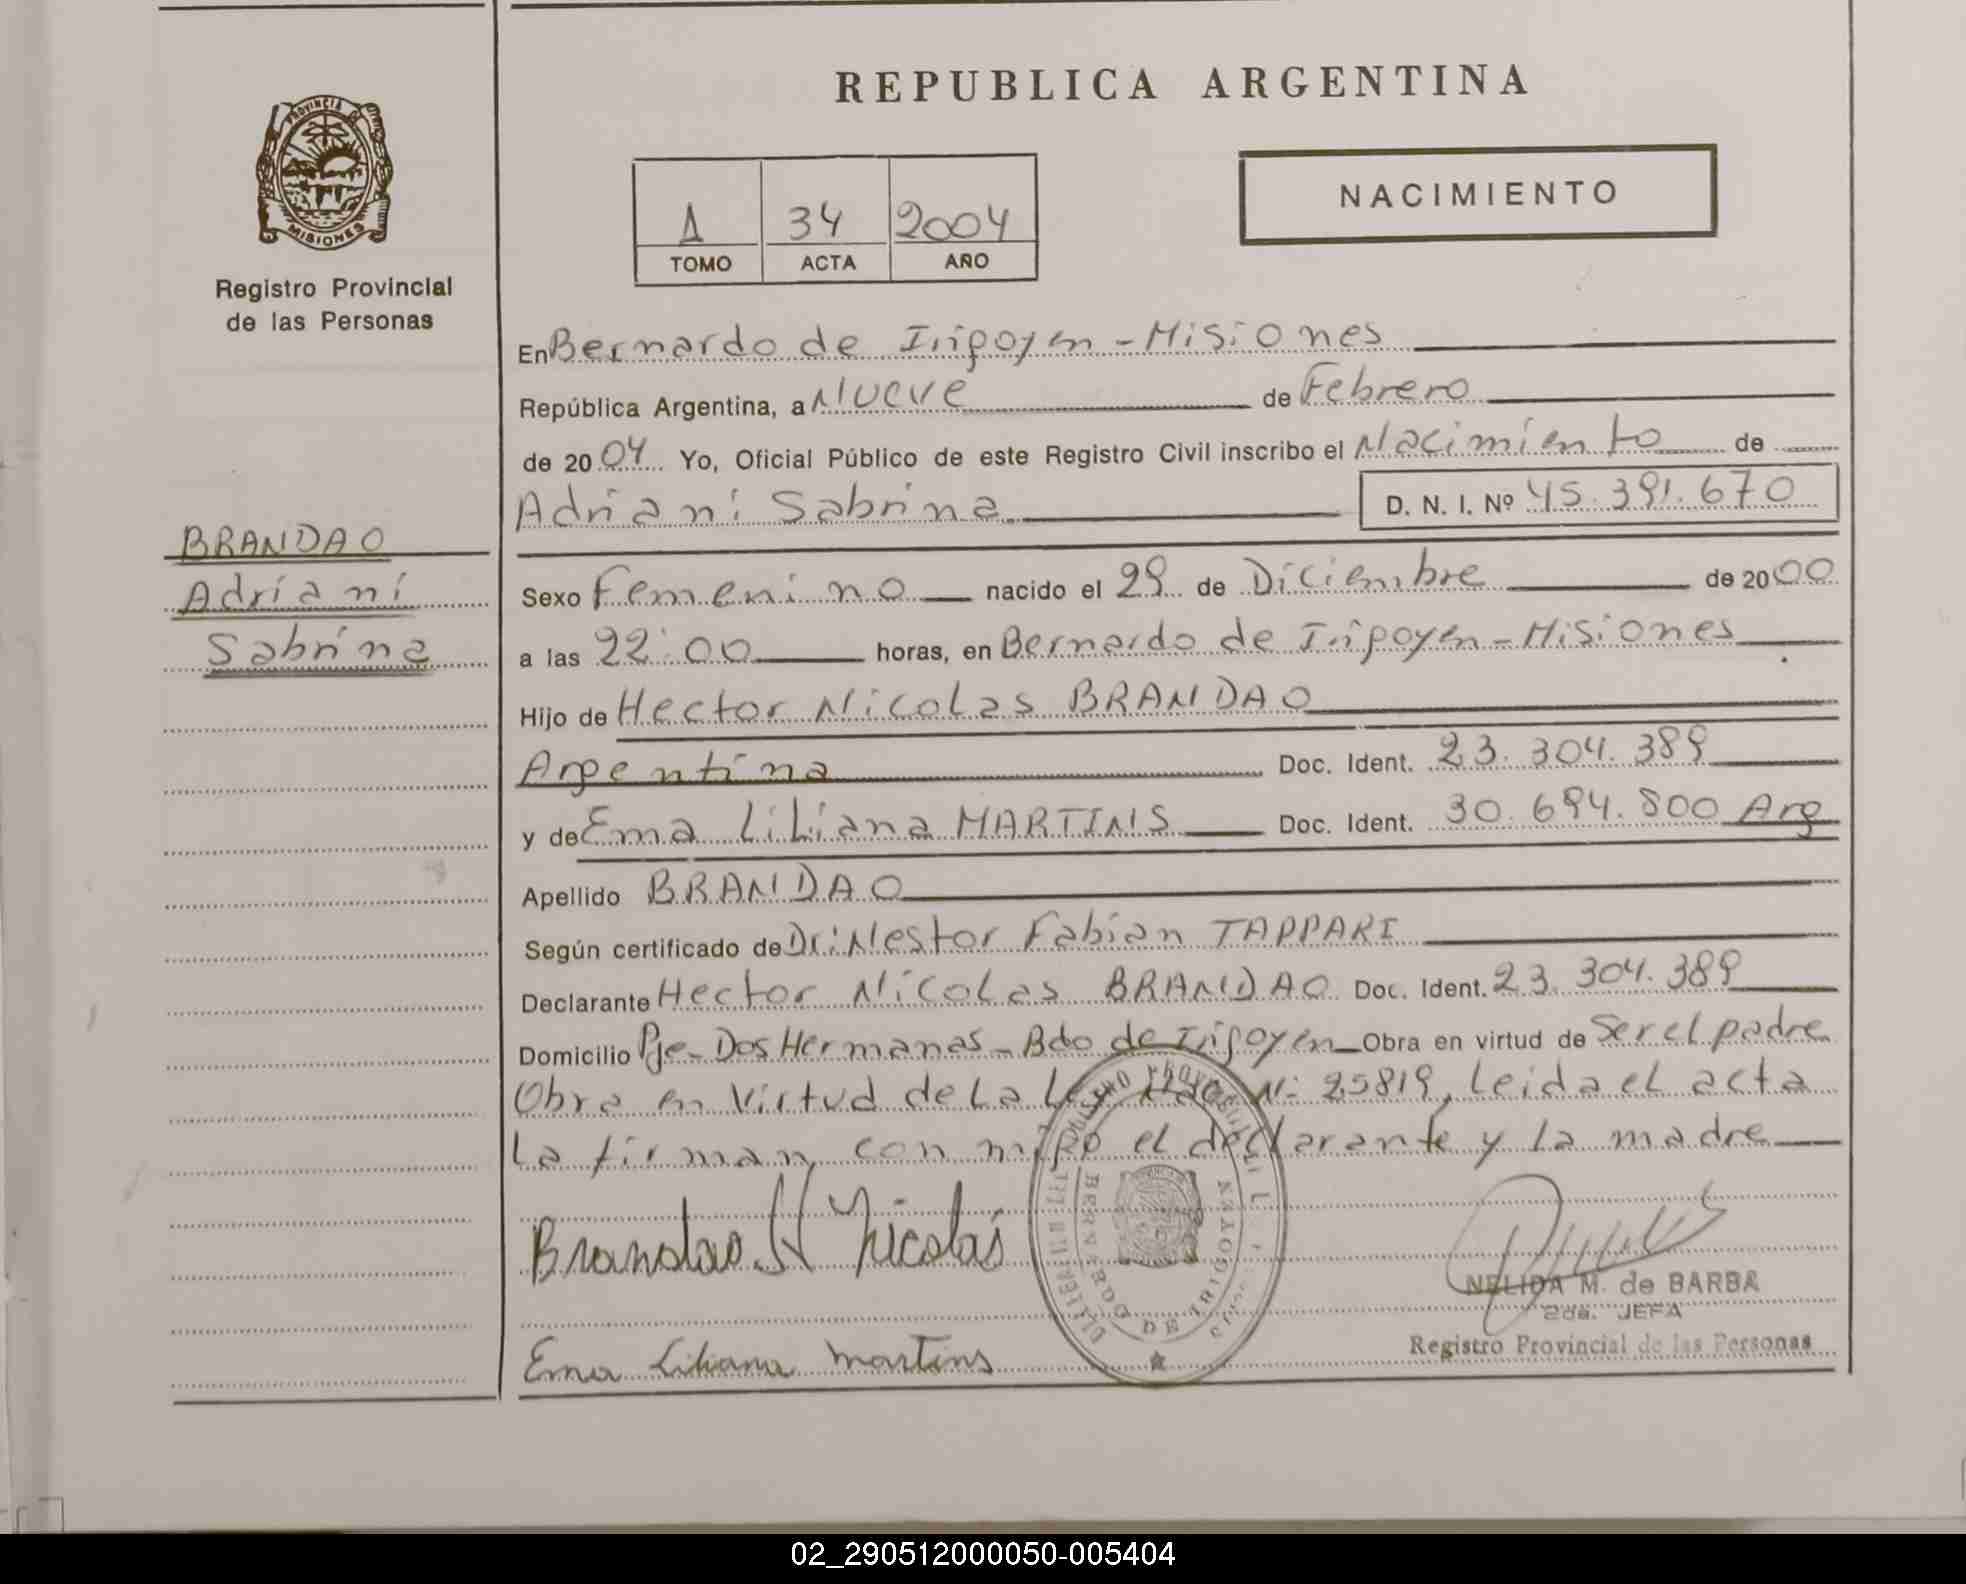 REPUBLICA ARGENTINA
PROVINCIA DE
MISIONES
Registro Provincial
de las Personas
1 34 2004
TOMO ACTA AÑO
NACIMIENTO
En Bernardo de Irigoyen - Misiones
República Argentina, a Nueve de Febrero
de 2004 Yo, Oficial Público de este Registro Civil inscribo el Nacimiento de
Adriani Sabrina D. N. I. Nº 45.391.670
BRANDAO
Adriani
Sabrina
Sexo Femenino nacido el 29 de Diciembre de 2000
a las 22:00 horas, en Bernardo de Irigoyen - Misiones
Hijo de Hector Nicolas BRANDAO
Argentina Doc. Ident. 23.304.389
y de Ema Liliana MARTINS Doc. Ident. 30.694.800 Arg
Apellido BRANDAO
Según certificado de Dr: Nestor Fabian TAPPARI
Declarante Hector Nicolas BRANDAO Doc. Ident. 23.304.389
Domicilio Pje - Dos Hermanas - Bdo de Irigoyen Obra en virtud de Ser el padre
Obra en Virtud de La Ley Nac. N: 25819, Leida el acta
La firman, con migo el declarante y La madre
Brandao H Nicolás
BERNARDO DE IRIGOYEN
NELIDA M. de BARBA
2da. JEFA
Registro Provincial de las Personas
Ema Liliana Martins
02_290512000050-005404